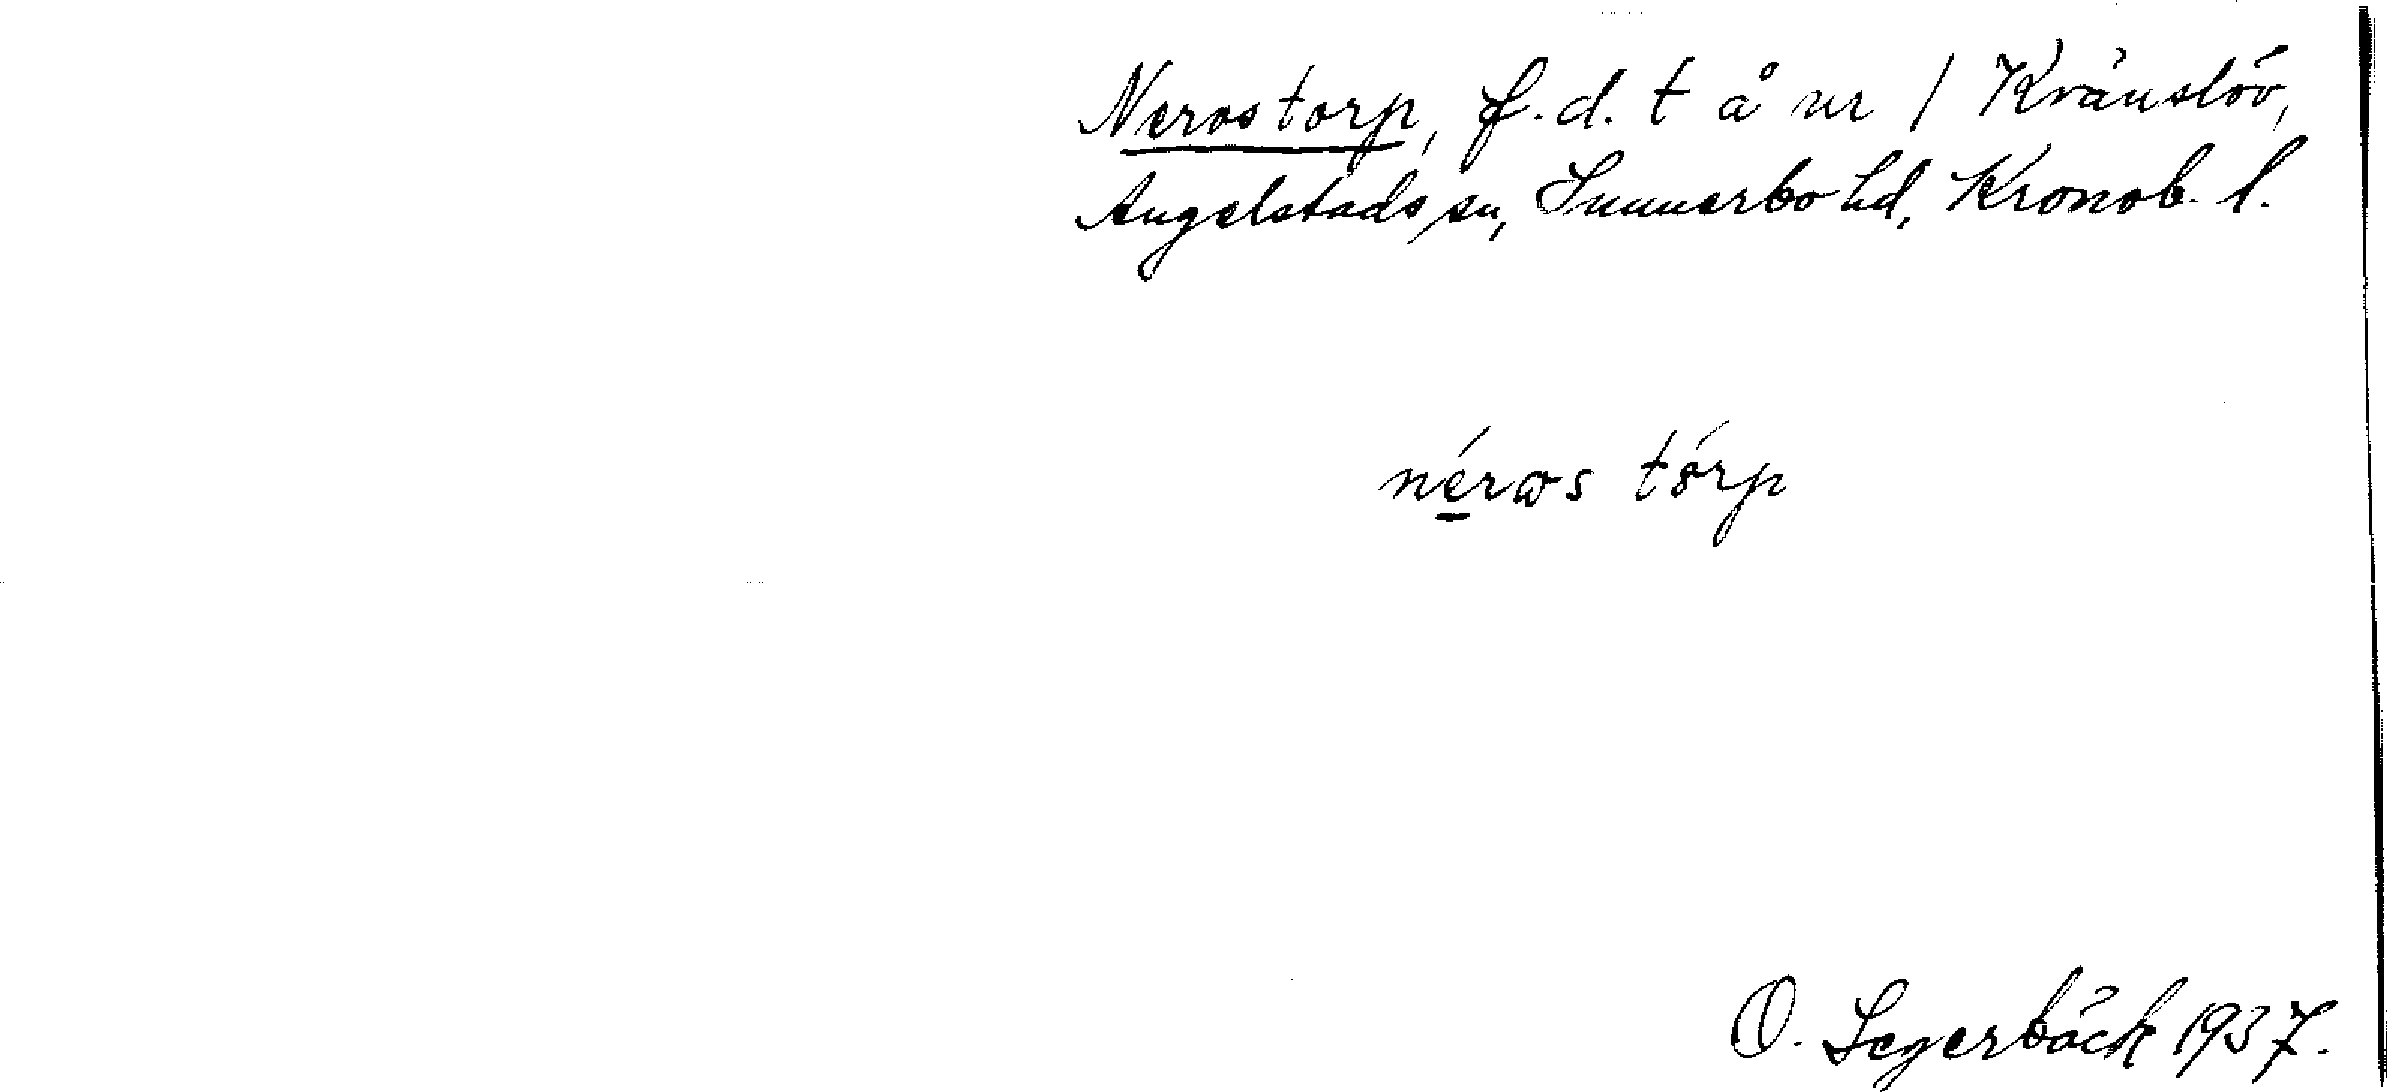 Nerostorp, f.d. t å nr 1 Kränslöv,
Angelstads sn, Sunnerbo hd, Kronob. l.
néros tórp
O. Segerbäck 1937.